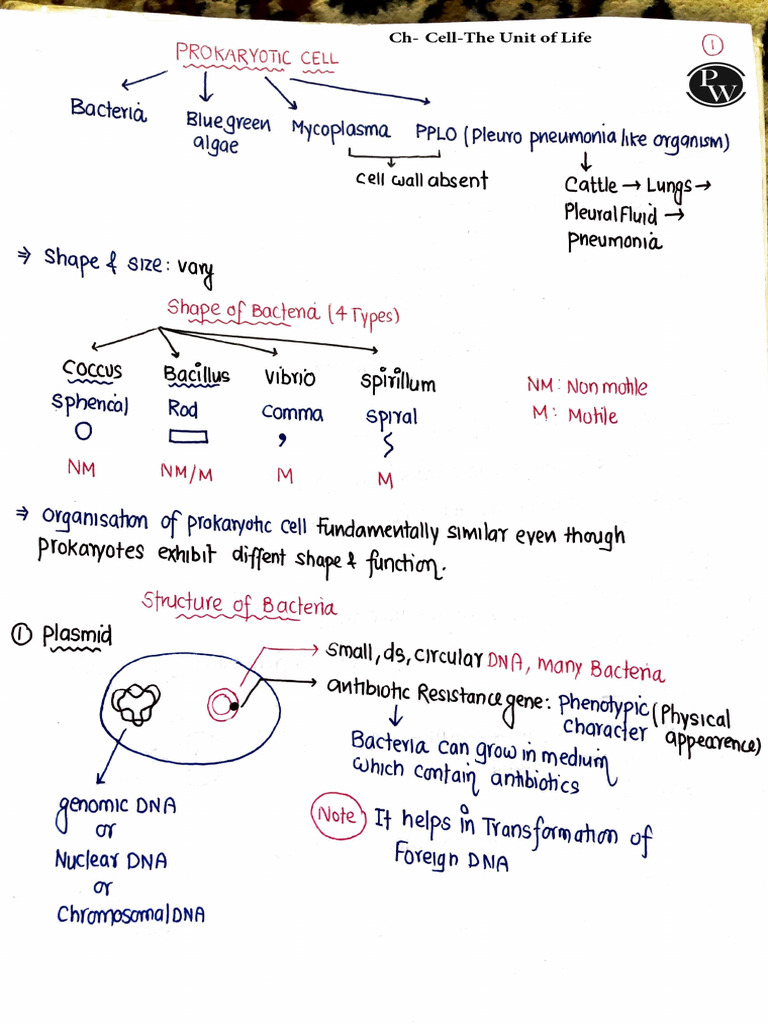 Ch- Cell-The Unit of Life
1
PW
PROKARYOTIC CELL
Bacteria
Blue green
algae
Mycoplasma
PPLO (Pleuro pneumonia like organism)
cell wall absent
Cattle → Lungs →
Pleural Fluid →
pneumonia
⇒ Shape & size: vary
Shape of Bacteria (4 Types)
Coccus Bacillus Vibrio Spirillum
Spherical Rod Comma Spiral
NM NM/M M M
NM: Non motile
M: Motile
⇒ Organisation of prokaryotic cell fundamentally similar even though
prokaryotes exhibit diffent shape & function.
Structure of Bacteria
① Plasmid
small, ds, circular DNA, many Bacteria
antibiotic Resistance gene: phenotypic (Physical
character appearence)
Bacteria can grow in medium
which contain antibiotics
genomic DNA
or
Nuclear DNA
or
Chromosomal DNA
Note It helps in Transformation of
Foreign DNA